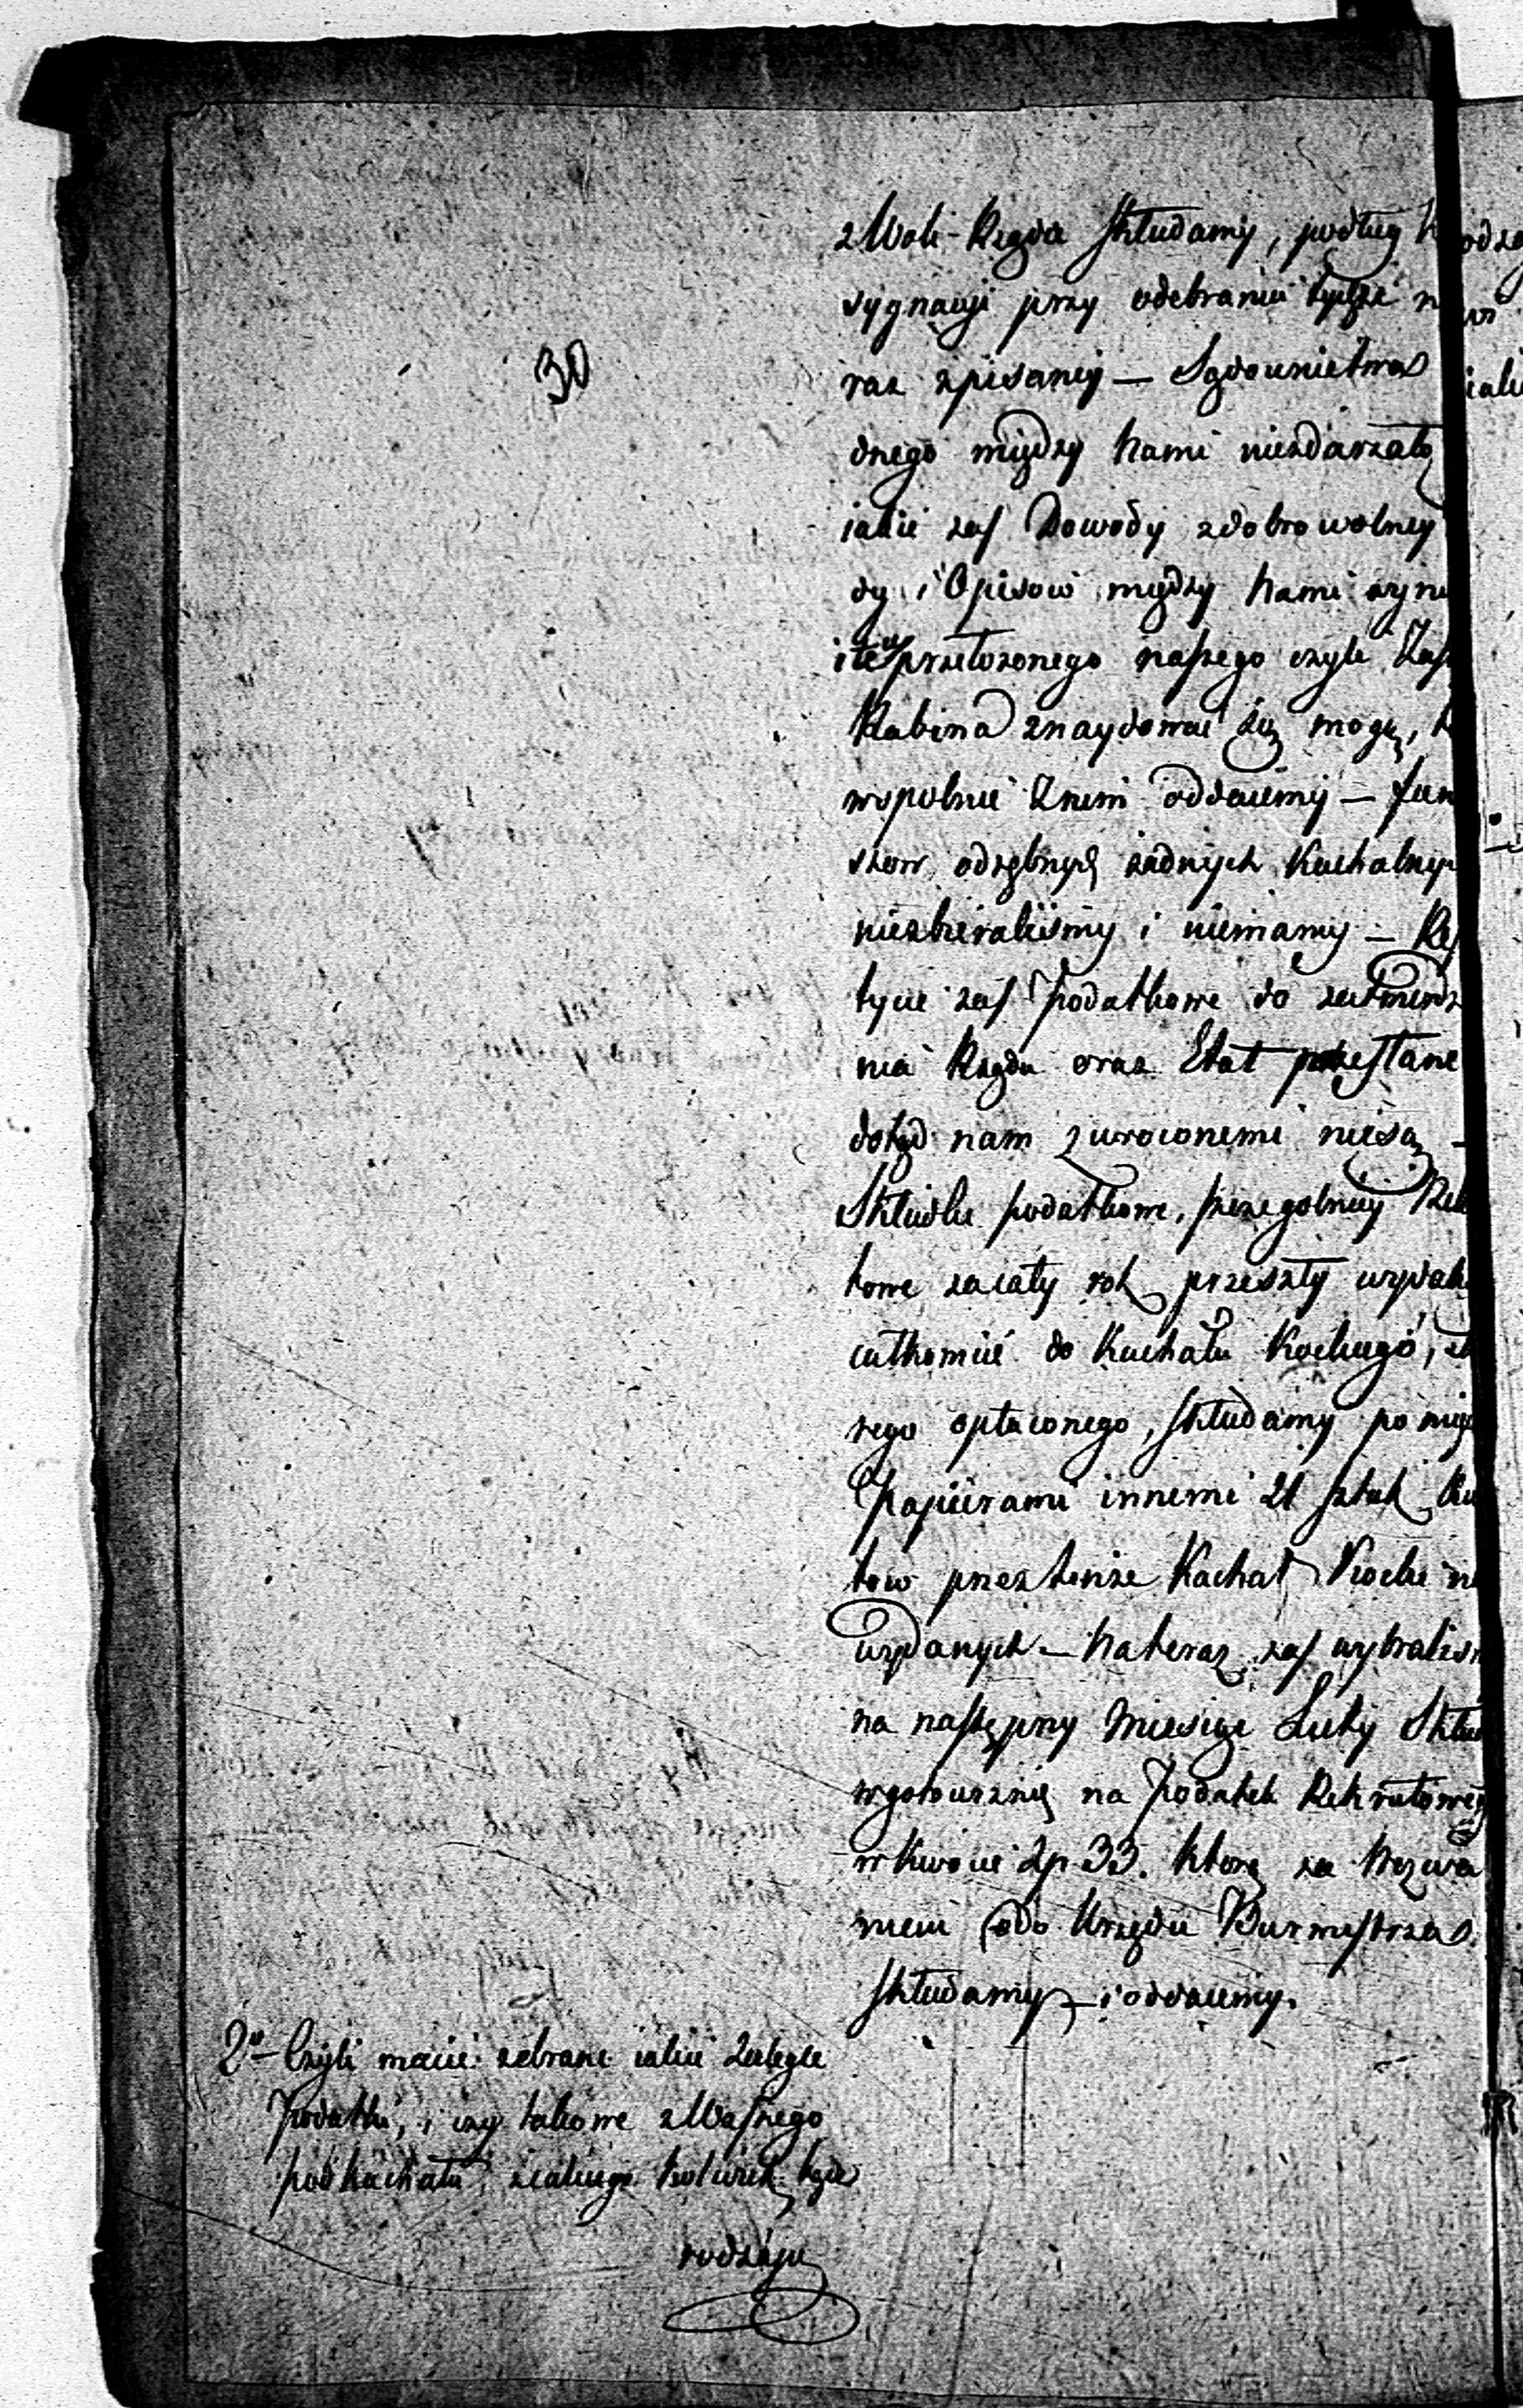 30
z Woli Rządu składamy, podług
sygnacyi przy odebraniu tychże
raz zpisaney — Sądownictwa
dnego między nami niezdarzało
iakie zaś Dowody zdobrowolney
dy i Opisow między nami
ile u przełożonego naszego czyli
Rabina znaydować się mogą,
wspolnie Znim oddaiemy —
szow odrębnych żadnych Kachalnych
niezbieraliśmy i niemamy —
tycie zaś podatkowe do zatwierdz
nia Rządu oraz Etat przesłane
dotąd nam zwroconemi niesą —
Składki podatkowe, szczegolniey
towe zacały rok przeszły
całkowicie do Kachału Kockiego,
rego opłaconego, składamy pomię
Papierami innemi 21 sztuk
tow przeztenże Kachał Kocki
wydanych — Nateraz zaś wybraliśm
na następny Miesiąc Luty
wgotowiznie na Podatek Rekrutowey
wkwocie Zp 33. ktorą za wezwa
niem do Urzędu Burmistrza
składamy — i oddaiemy.
2o — Czyli macie zebrane iakie Zaległe
Podatki, i czy takowe zWasznego
podkachału, ziakiego kolwiek bądz
rodzaju